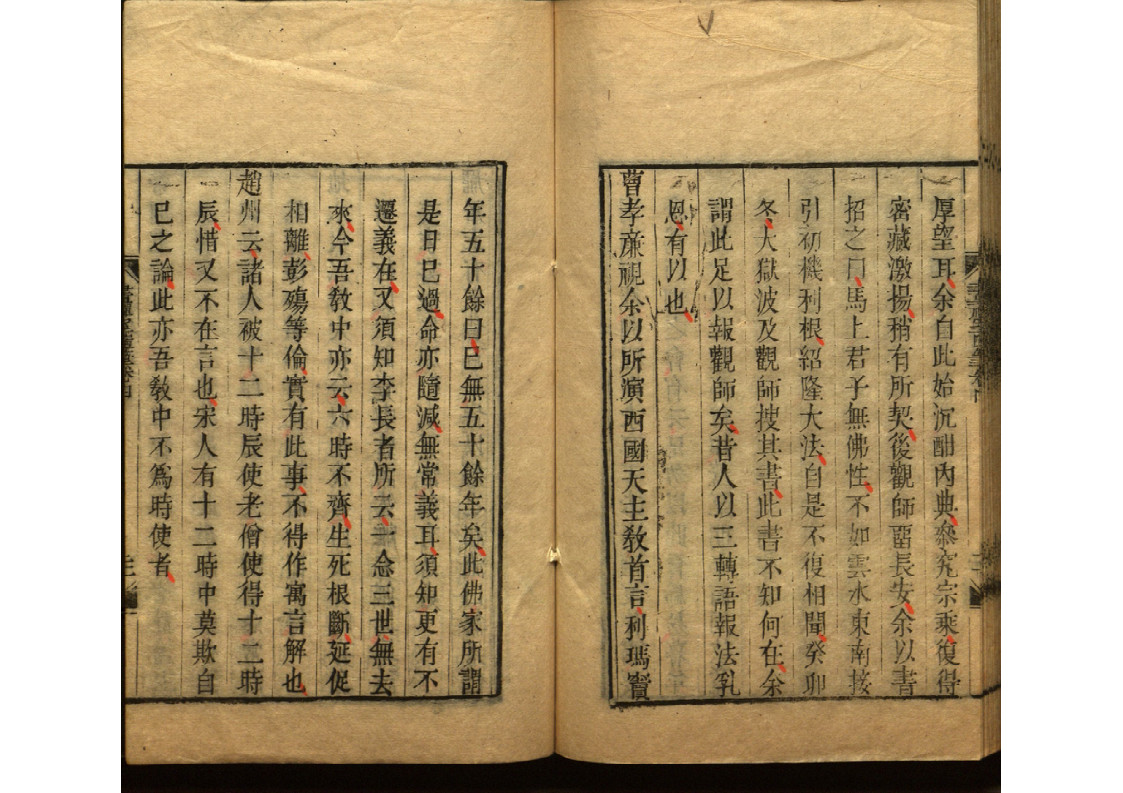 厚望耳余自此始沉酣內典叅究宗乘復得
密藏激揚稍有所契後觀師畱長安余以書
招之曰馬上君子無佛性不如雲水東南接
引初機利根紹隆大法自是不復相聞癸卯
冬大獄波及觀師搜其書此書不知何在余
謂此足以報觀師矣昔人以三轉語報法乳
恩有以也
曹孝廉視余以所演西國天主教首言利瑪竇
年五十餘曰巳無五十餘年矣此佛家所謂
是日巳過命亦隨減無常義耳須知更有不
遷義在又須知李長者所云一念三世無去
來今吾教中亦云六時不齊生死根斷延促
相離彭殤等倫實有此事不得作寓言解也
趙州云諸人被十二時辰使老僧使得十二時
辰惜又不在言也宋人有十二時中莫欺自
巳之論此亦吾教中不為時使者